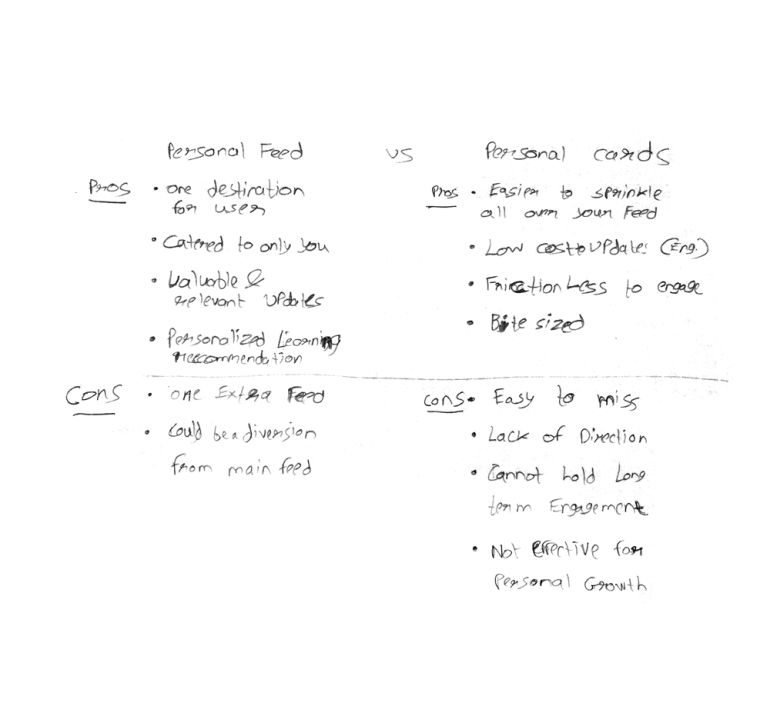 Personal Feed vs Personal cards
Pros
• one destination
for user
• Catered to only you
• Valuable &
relevant updates
• Personalized Learning
reccommendation
Pros • Easier to sprinkle
all over your Feed
• Low cost to update (Eng.)
• Frictionless to engage
• Bite sized
Cons • one Extra Feed
• Could be a diversion
from main feed
Cons • Easy to miss
• Lack of Direction
• Cannot hold Long
term Engagement
• Not effective for
Personal Growth